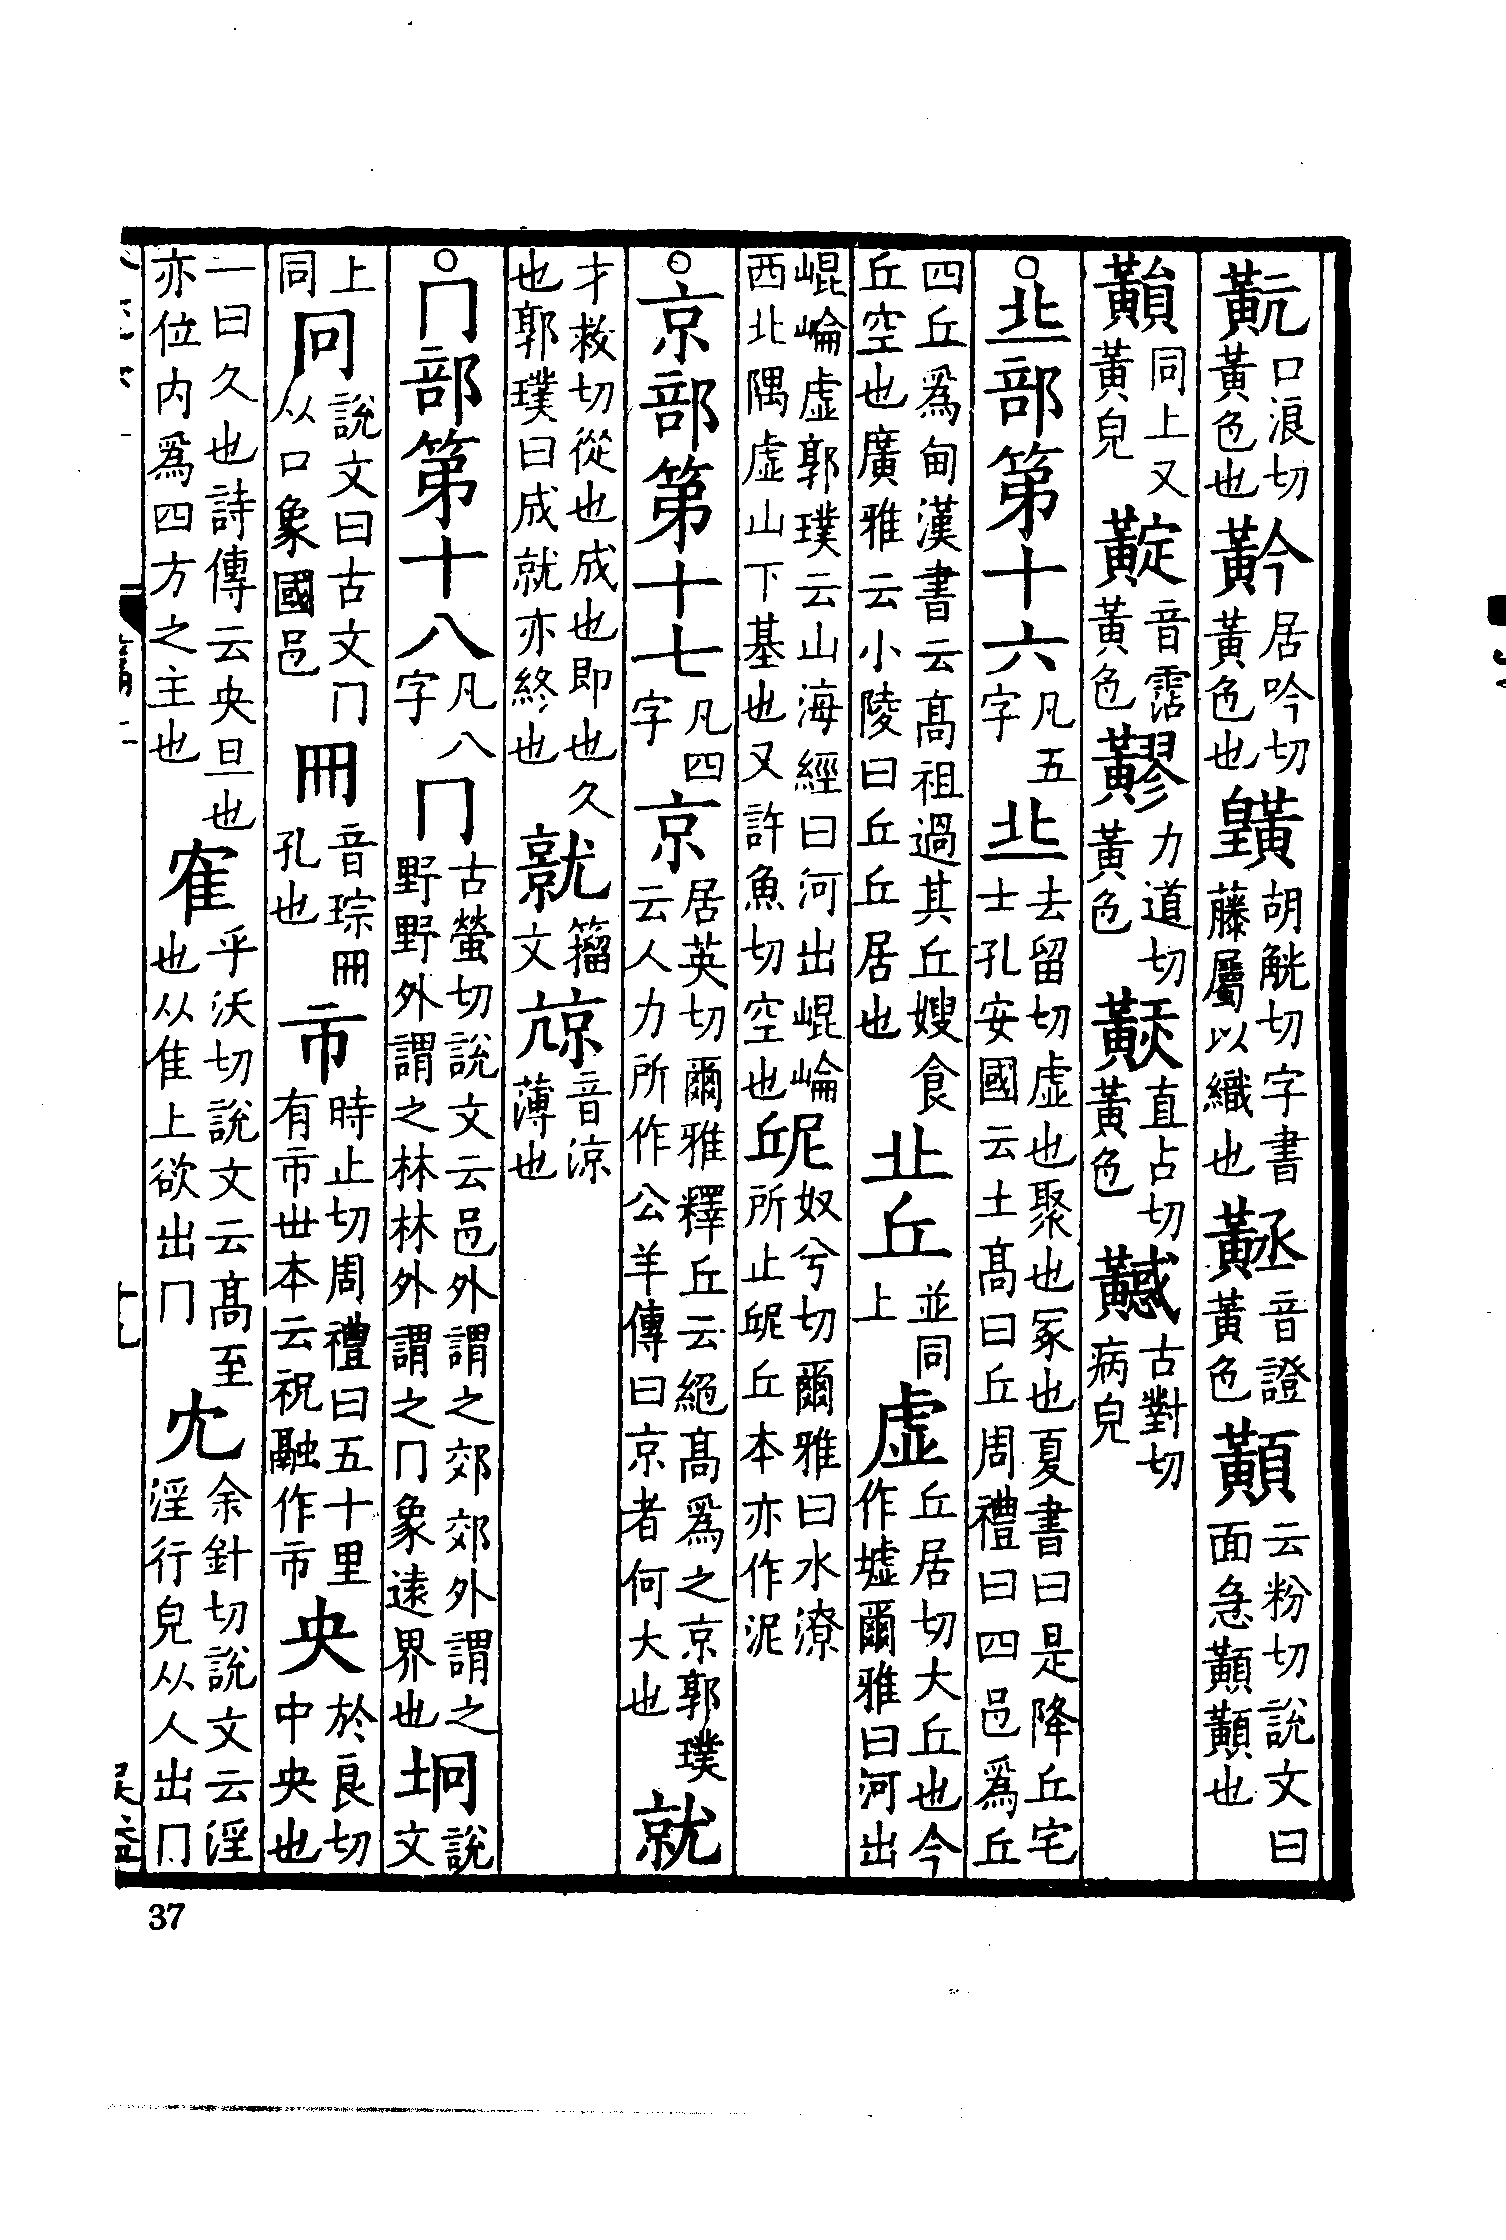 䵃口浪切黃色也黅居吟切黃色也𪏓胡觥切字書藤屬以織也𪏝音證黃色䵋云粉切說文曰面急䵋䵋也
同上又黃皃音霑黃色力道切黃色直占切黃色古對切病皃
○丠部第十六凡五字丠去留切虛也聚也冢也夏書曰是降丘宅士孔安國云土髙曰丘周禮曰四邑爲丘
四丘爲甸漢書云髙祖過其丘嫂食丘空也廣雅云小陵曰丘丘居也丘並同上虛丘居切大丘也今作墟爾雅曰河出
崐崘虛郭璞云山海經曰河出崐崘西北隅虛山下基也又許魚切空也𡊲奴兮切爾雅曰水潦所止𡊲丘本亦作泥
○京部第十七凡四字京居英切爾雅釋丘云絕髙爲之京郭璞云人力所作公羊傳曰京者何大也就
才救切從也成也即也久也郭璞曰成就亦終也籀文䣼音涼薄也
○冂部第十八凡八字冂古螢切說文云邑外謂之郊郊外謂之野野外謂之林林外謂之冂象遠界也坰說文
上同冋說文曰古文冂从口象國邑𠕁音琮𠕁孔也市時止切周禮曰五十里有市世本云祝融作市央於良切中央也
一曰久也詩傳云央旦也亦位内爲四方之主也隺乎沃切說文云髙至也从隹上欲出冂冘余針切說文云淫淫行皃从人出冂
37